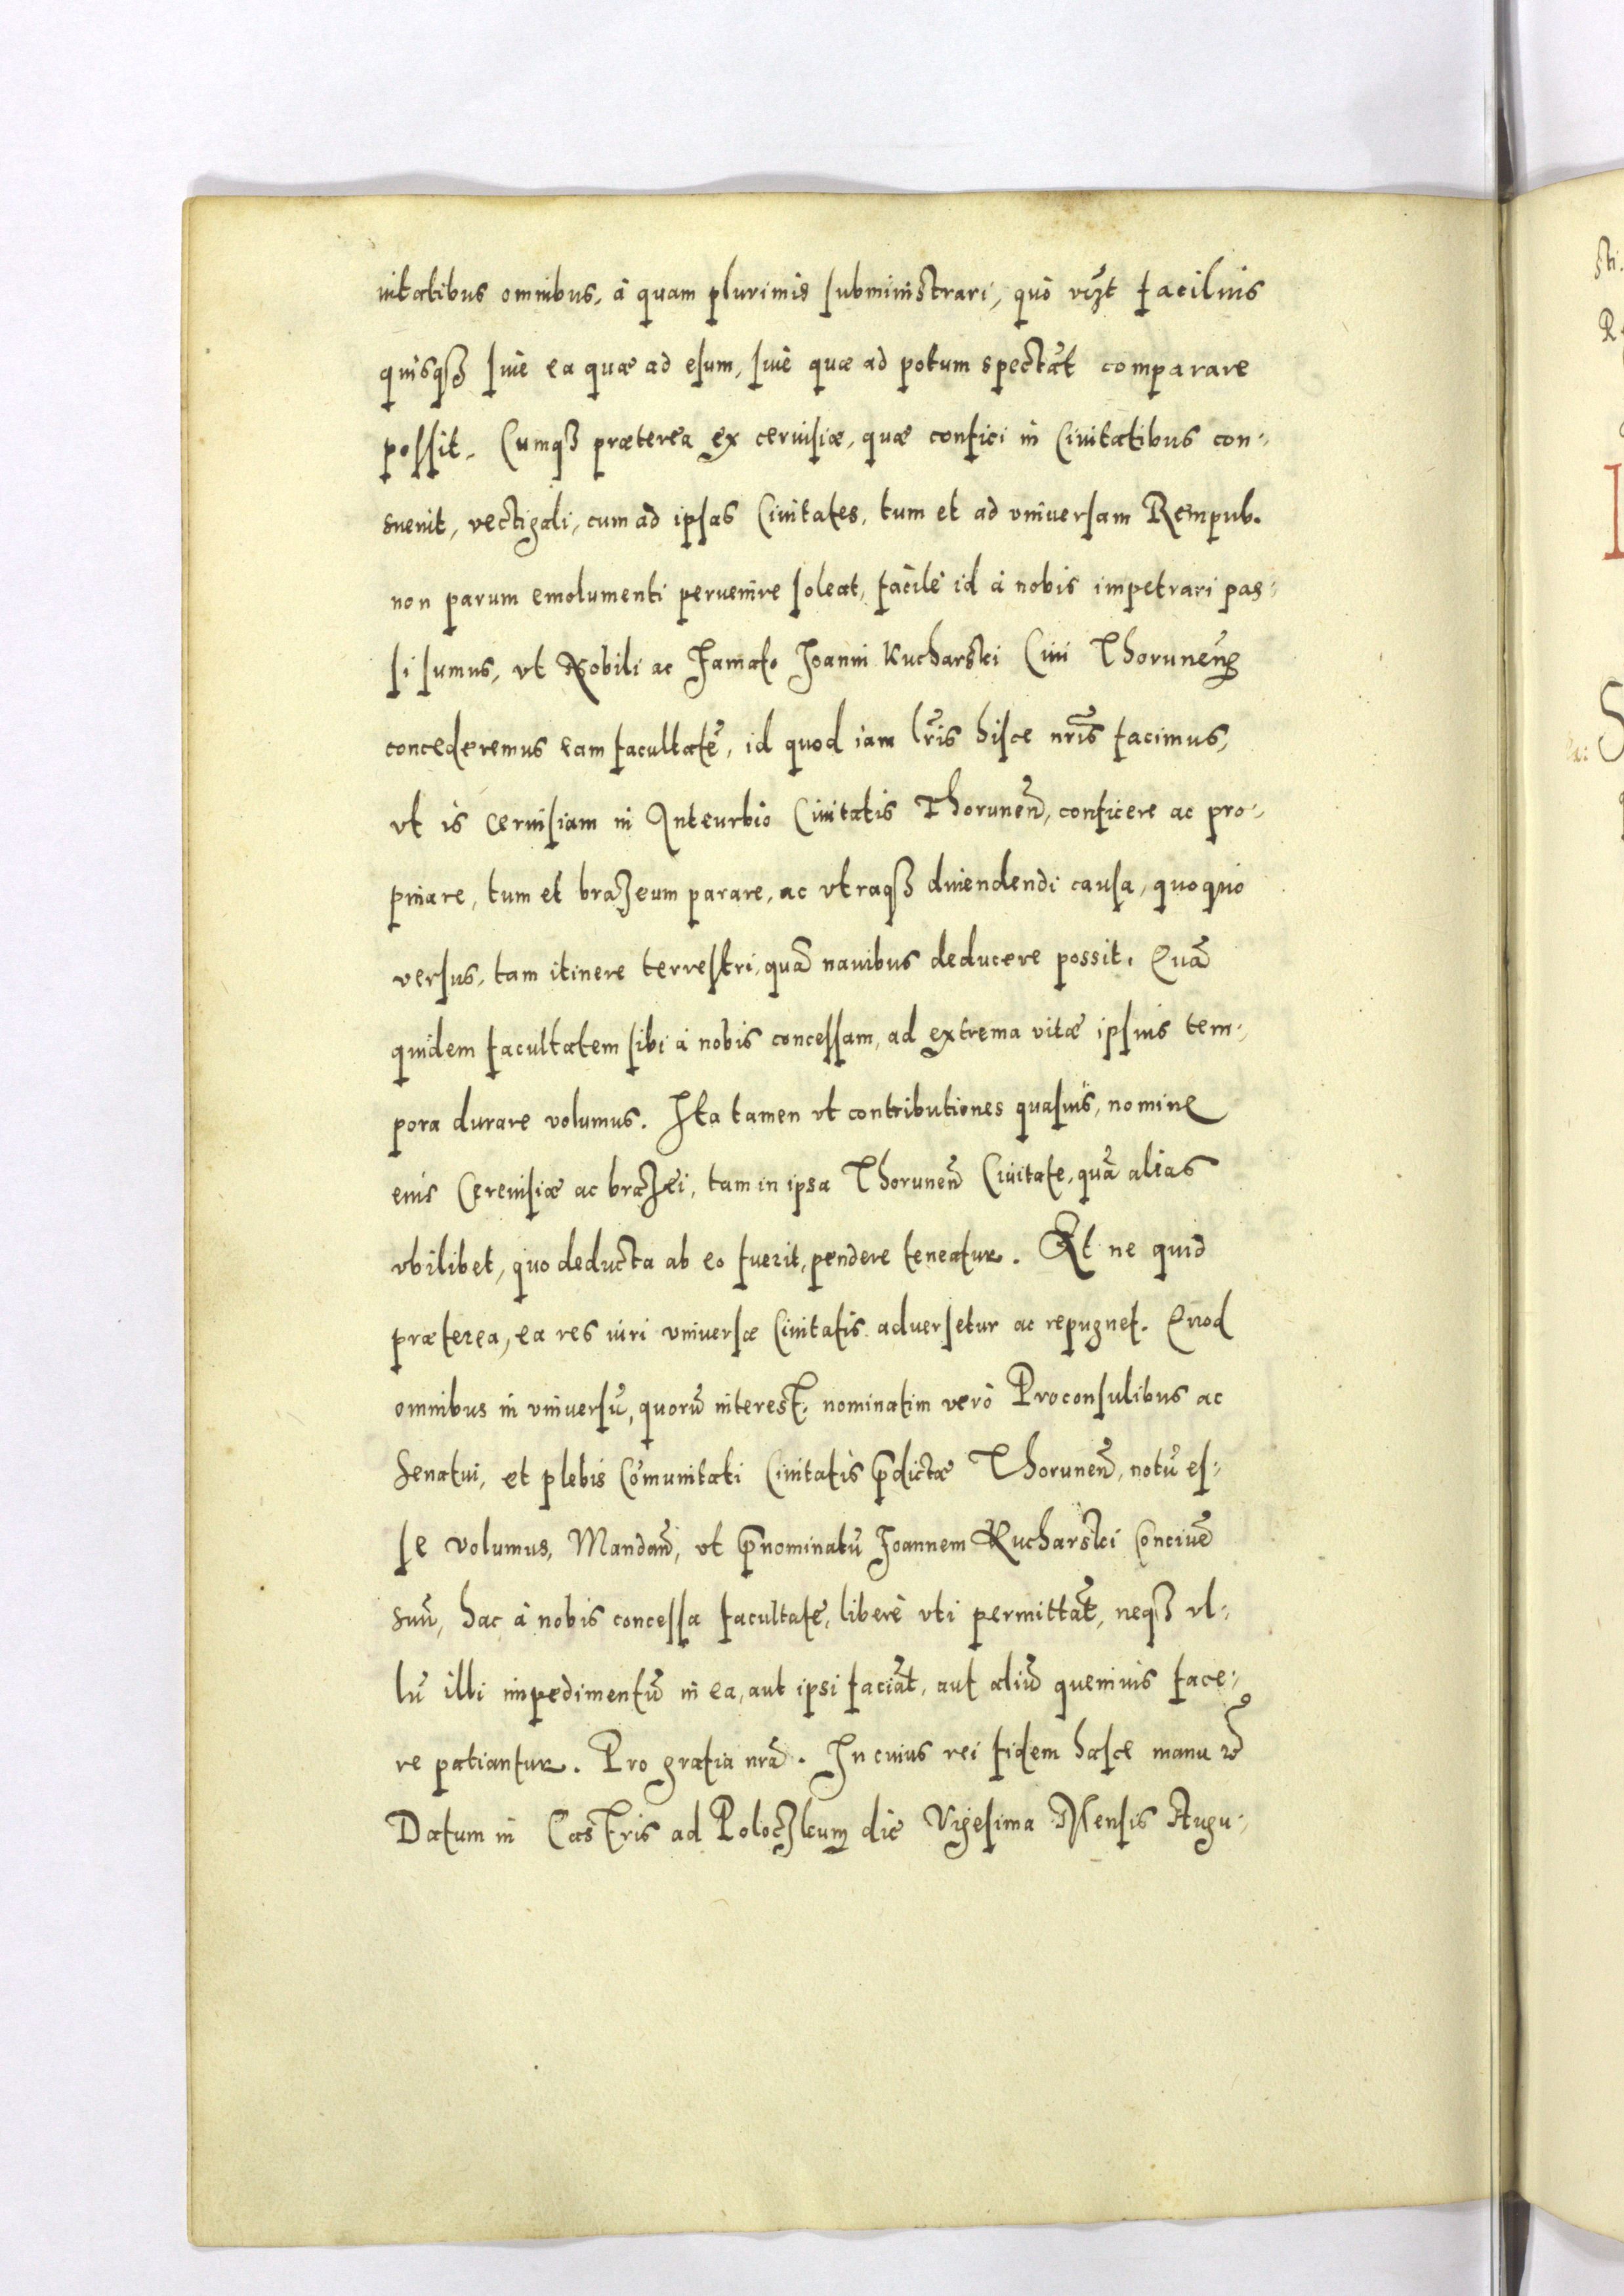 uitatibus omnibus, à quam plurimis subministrari, quò vczt facilius
quisqꝫ siue ea quæ ad esum, siuè quæ ad potum spectāt comparare
possit. Cumqꝫ præterea ex ceruisiæ, quæ confici in Ciuitatibus con-
sueuit, vectigali, cum ad ipsas Ciuitates, tum et ad vniuersam Rempub.
non parum emolumenti peruenire soleat, facilè id à nobis impetrari pas-
si sumus, vt Nobili ac Famato Joanni Kucharski Ciui Thorunen̄
concederemus eam facultatē, id quod iam lr̄is hisce nr̄is facimus,
vt is ceruisiam in Anteurbio Ciuitatis Thorunen̄, conficere ac pro-
pinare, tum et brazeum parare, ac vtraqꝫ diuendendi causa, quoquo
versus, tam itinere terrestri, quā nauibus deducere possit. Quā
quidem facultatem sibi à nobis concessam, ad extrema vitæ ipsius tem-
pora durare volumus. Ita tamen vt contributiones quasuis, nomine
eius Cereuisiæ ac brazei, tam in ipsa Thorunen̄ Ciuitate, quā alias
vbilibet, quo deducta ab eo fuerit, pendere teneatur. Et ne quid
præterea, ea res iuri vniuersæ Ciuitatis aduersetur ac repugnet. Quod
omnibus in vniuersū, quorū interest, nominatim verò Proconsulibus ac
Senatui, et plebis Cōmunitati Ciuitatis p̄dictæ Thorunen̄, notū es-
se volumus, Mandan̄, vt p̄nominatū Joannem Kucharski Conciuē
suū, hac à nobis concessa facultate, liberè vti permittāt, neqꝫ vl-
lū illi impedimentū in ea, aut ipsi faciāt, aut aliū quemuis face-
re patiantur. Pro gratia nr̄a. In cuius rei fidem hasce manu
Datum in Castris ad Poloczkum die Vigesima Mensis Augu-